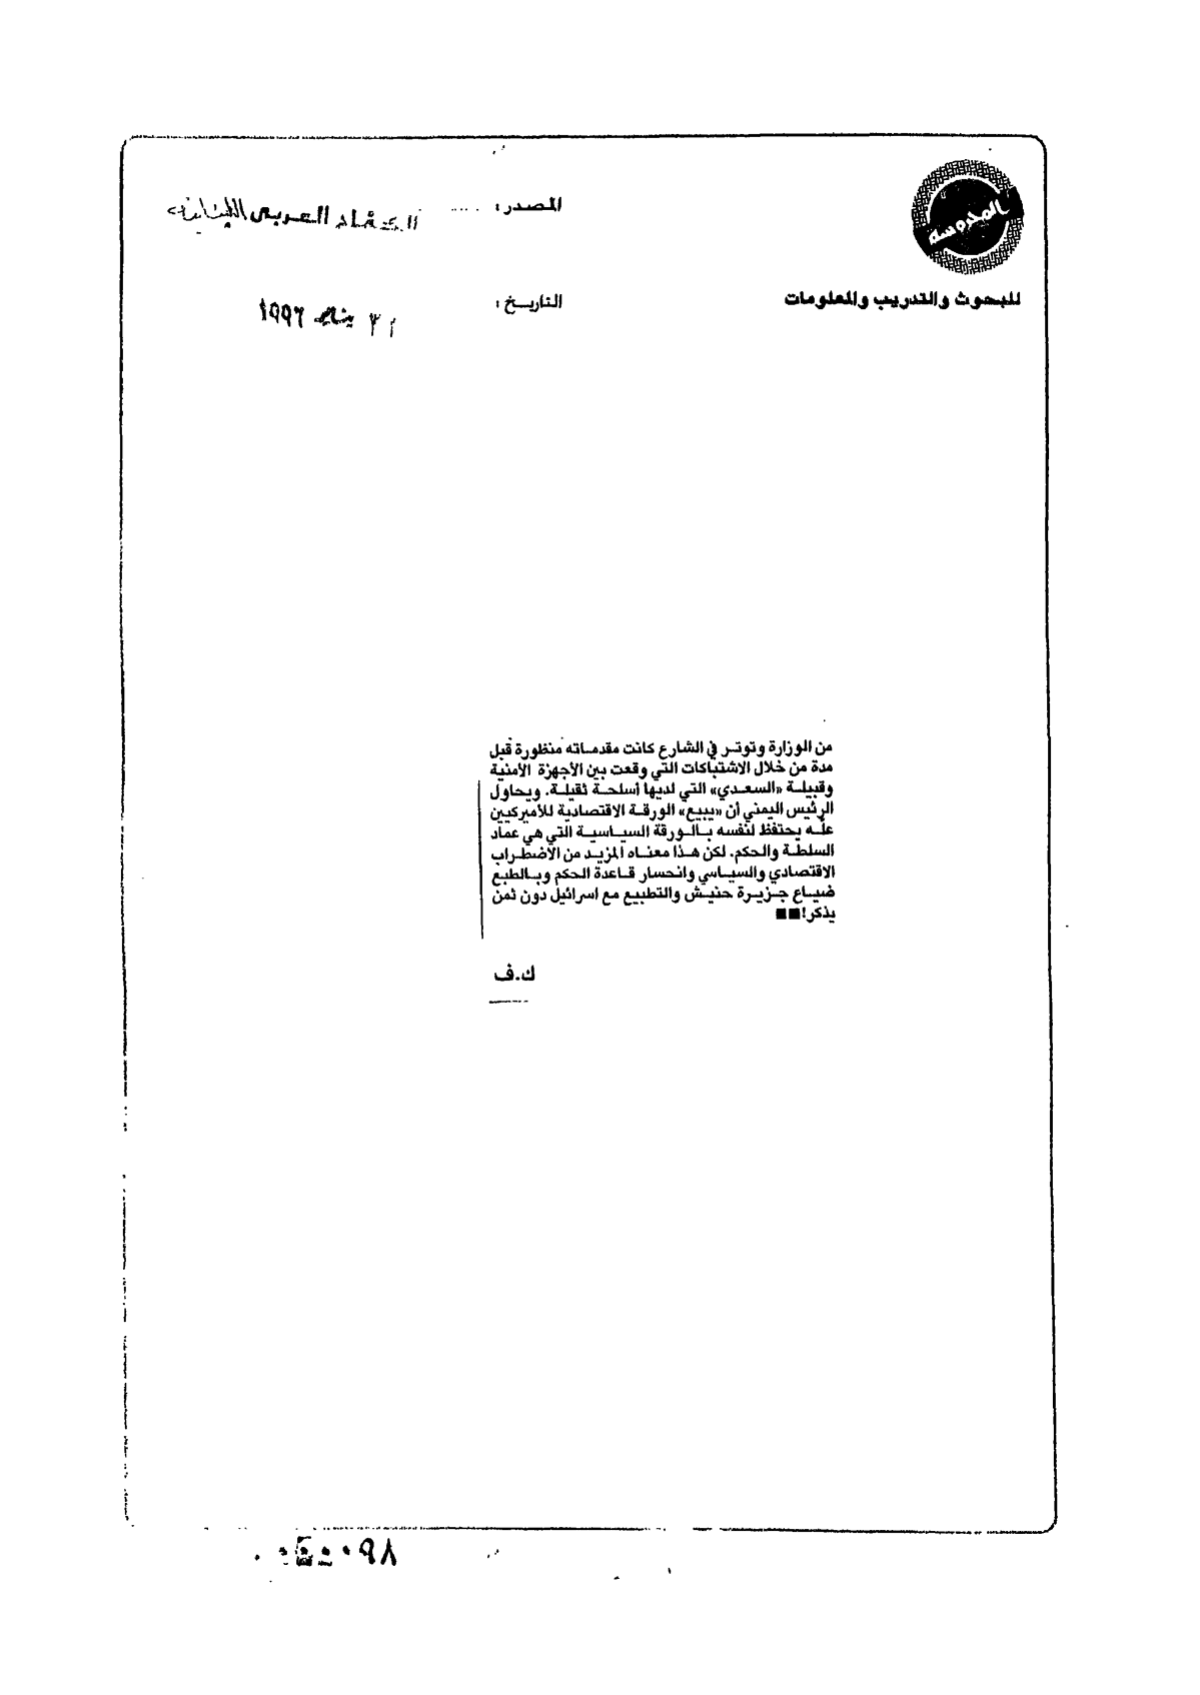 المحروسة
للبحوث والتدريب والمعلومات
المصدر :
العربى
التاريخ :
يناير ١٩٩٦
من الوزارة وتوتر في الشارع كانت مقدماته منظورة قبل
مدة من خلال الاشتباكات التي وقعت بين الأجهزة الأمنية
وقبيلة «السعدي» التي لديها أسلحة ثقيلة. ويحاول
الرئيس اليمني أن «يبيع» الورقة الاقتصادية للأميركيين
علّه يحتفظ لنفسه بالورقة السياسية التي هي عماد
السلطة والحكم. لكن هذا معناه المزيد من الاضطراب
الاقتصادي والسياسي وانحسار قاعدة الحكم وبالطبع
ضياع جزيرة حنيش والتطبيع مع اسرائيل دون ثمن
يذكر!■■
ك.ف